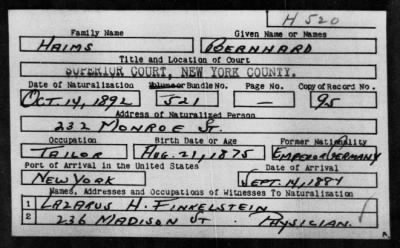 H 520
Family Name Given Name or Names
HAIMS BERNHARD
Title and Location of Court
SUPERIOR COURT, NEW YORK COUNTY.
Date of Naturalization Volume or Bundle No. Page No. Copy of Record No.
OCT. 14, 1892 521 — 95
Address of Naturalized Person
232 MONROE ST.
Occupation Birth Date or Age Former Nationality
TAILOR AUG. 21, 1875 EMPEROR GERMANY
Port of Arrival in the United States Date of Arrival
NEW YORK SEPT. 14, 1887
Names, Addresses and Occupations of Witnesses To Naturalization
1 LAZARUS H. FINKELSTEIN
2 236 MADISON ST. PHYSICIAN.